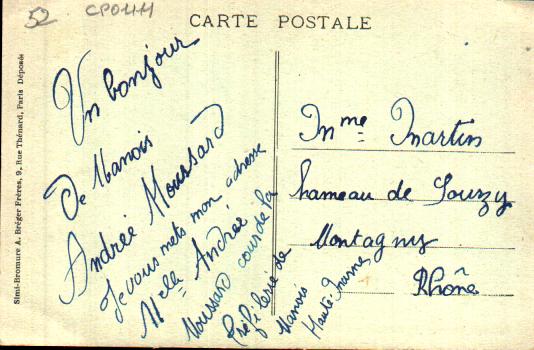 52 CPO1411
CARTE POSTALE
Simi-Bromure A. Bréger Frères, 9, Rue Thénard, Paris Déposés
Un bonjour
De Manois
Andrée Moussard
Je vous mets mon adresse
Melle Andrée
Moussard cour de la
tréfilerie de
Manois
Haute Marne
Mme Martin
hameau de Souzy
Montagny
Rhône